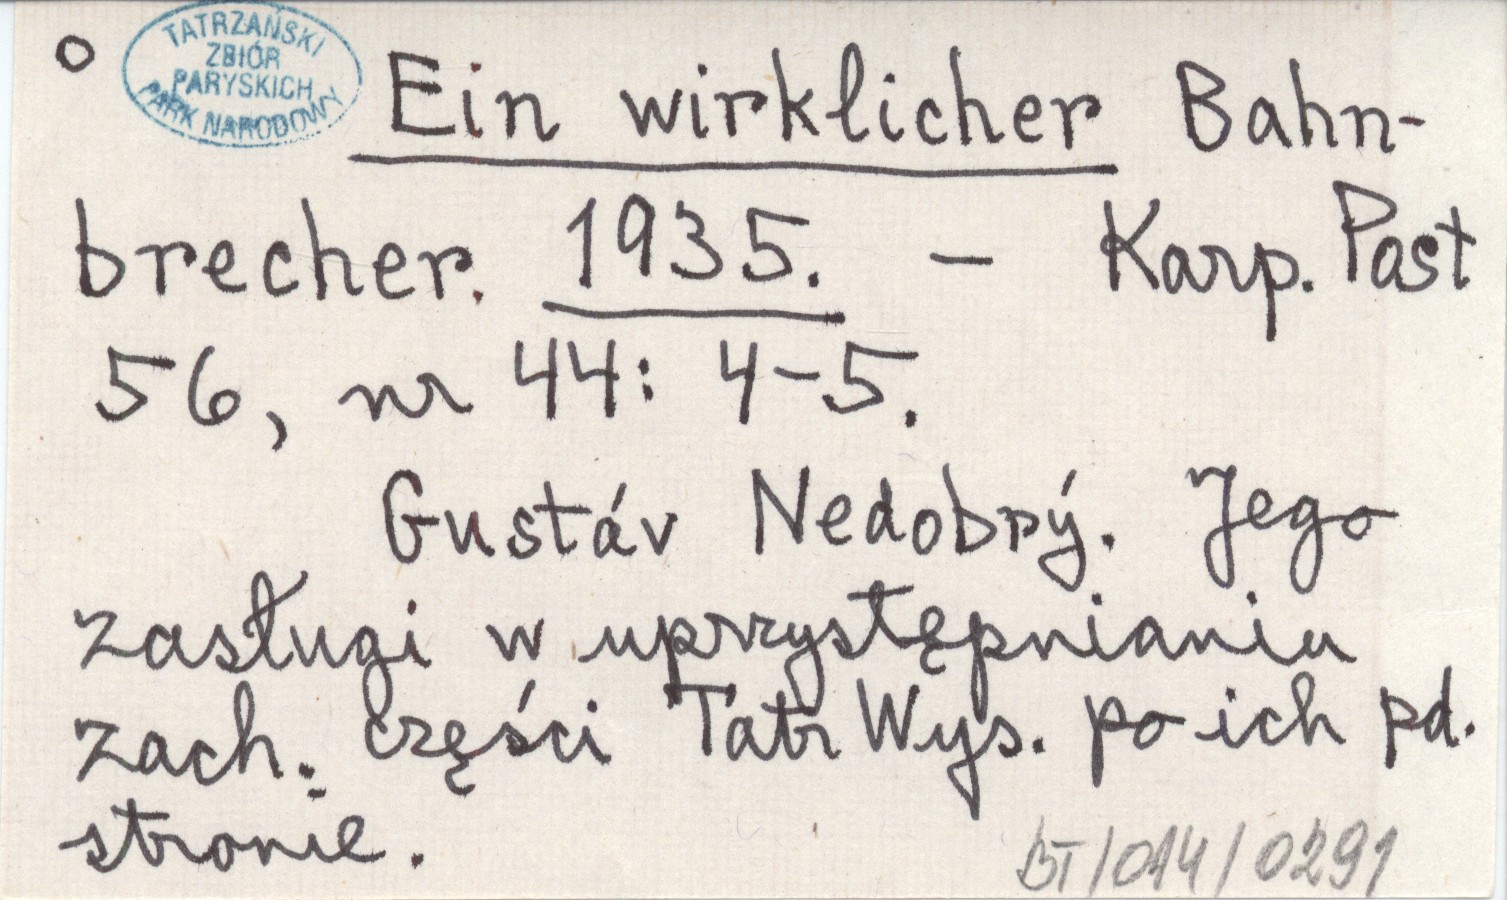 o
TATRZAŃSKI
ZBIÓR
PARYSKICH
PARK NARODOWY
Ein wirklicher Bahn-
brecher. 1935. — Karp. Post
56, nr 44: 4-5.
Gustáv Nedobrý. Jego
zasługi w uprzystępnianiu
zach. części Tatr Wys. po ich pd.
stronie.
BT/014/0291